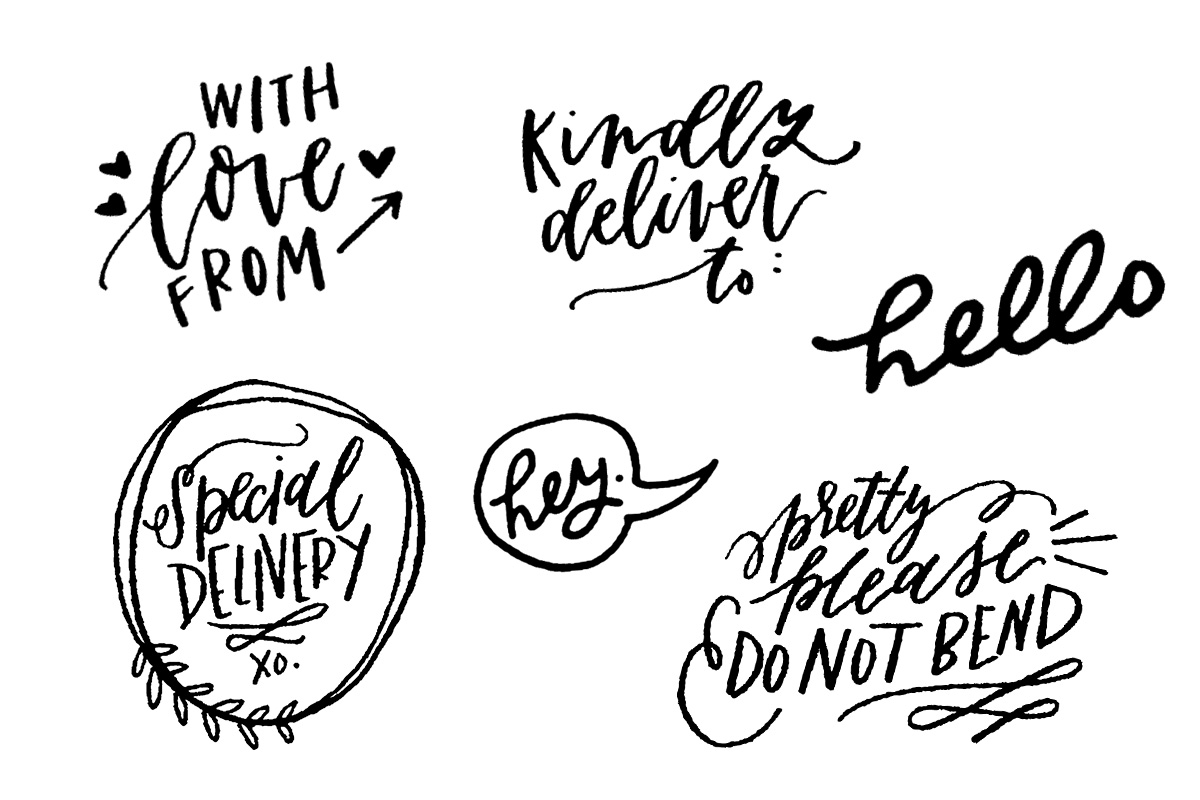 WITH
love
FROM
Kindly
deliver
to:
hello
Special
DELIVERY
XO.
hey.
pretty
please
DO NOT BEND